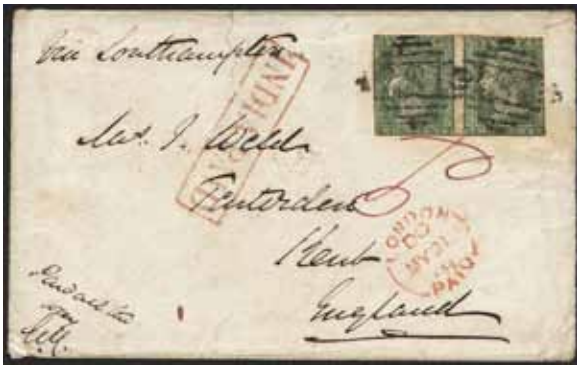 Via Southampton
INDIA PAID
Mrs. J. Weld
Tenterden
Kent
England
LONDON
MY 21
PAID